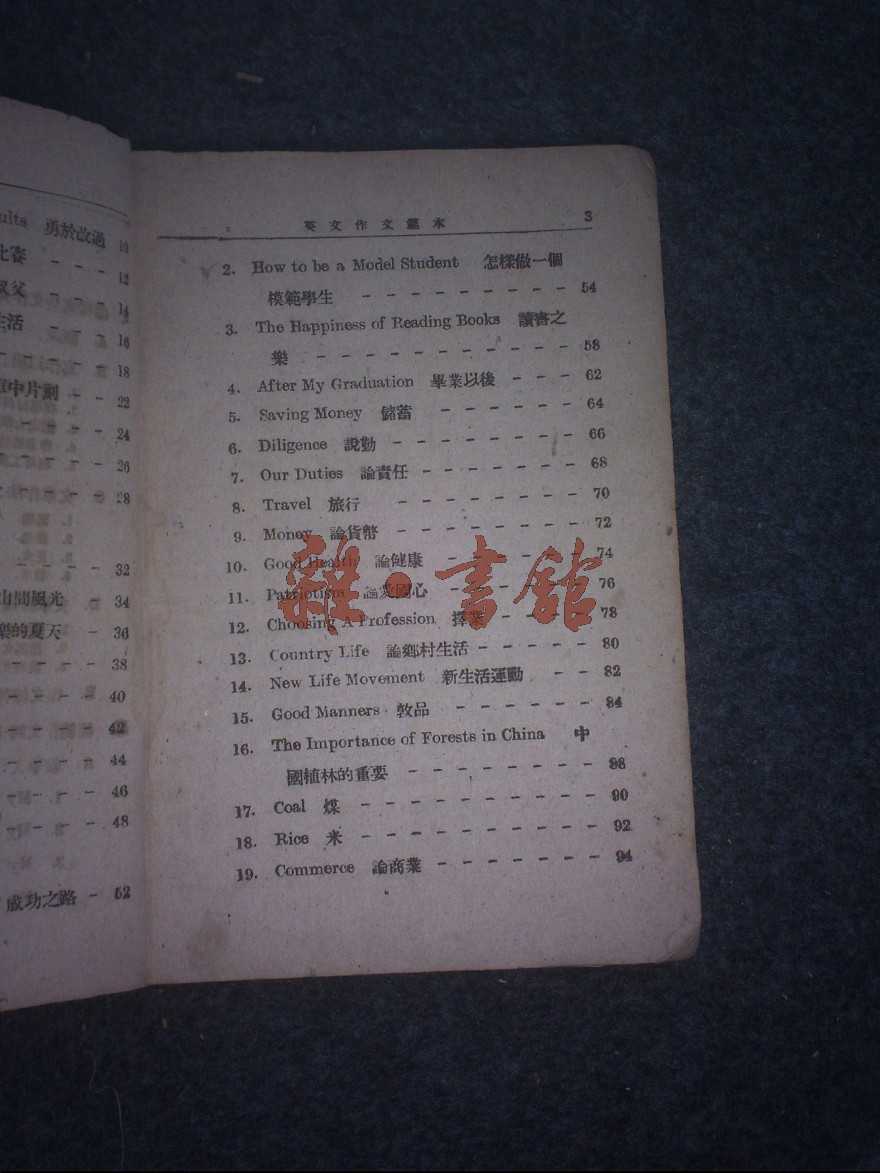 ults 勇於改過 10
比賽 - - - 12
叔父 - - - 14
生活 - - - 16
- - - - 18
車中片刻 - - 22
- - - - 24
- - - - 26
- - - - 28
- - - - - 32
山間風光 - 34
樂的夏天 - 36
- - - - 38
- - - - 40
- - - - 42
- - - - 44
- - - - 46
- - - - 48
成功之路 - 52
英文作文範本 3
2. How to be a Model Student 怎樣做一個
模範學生 - - - - - - - - - 54
3. The Happiness of Reading Books 讀書之
樂 - - - - - - - - - - - 58
4. After My Graduation 畢業以後 - - - 62
5. Saving Money 儲蓄 - - - - - - 64
6. Diligence 說勤 - - - - - - - 66
7. Our Duties 論責任 - - - - - - 68
8. Travel 旅行 - - - - - - - 70
9. Money 論貨幣 - - - - - - - 72
10. Good Health 論健康 - - - - - 74
11. Patriotism 論愛國心 - - - - - 76
12. Choosing A Profession 擇業 - - - - 78
13. Country Life 論鄉村生活 - - - - 80
14. New Life Movement 新生活運動 - - 82
15. Good Manners 敦品 - - - - - - 84
16. The Importance of Forests in China 中
國植林的重要 - - - - - - - 88
17. Coal 煤 - - - - - - - - - 90
18. Rice 米 - - - - - - - - - 92
19. Commerce 論商業 - - - - - - 94
雜·書館